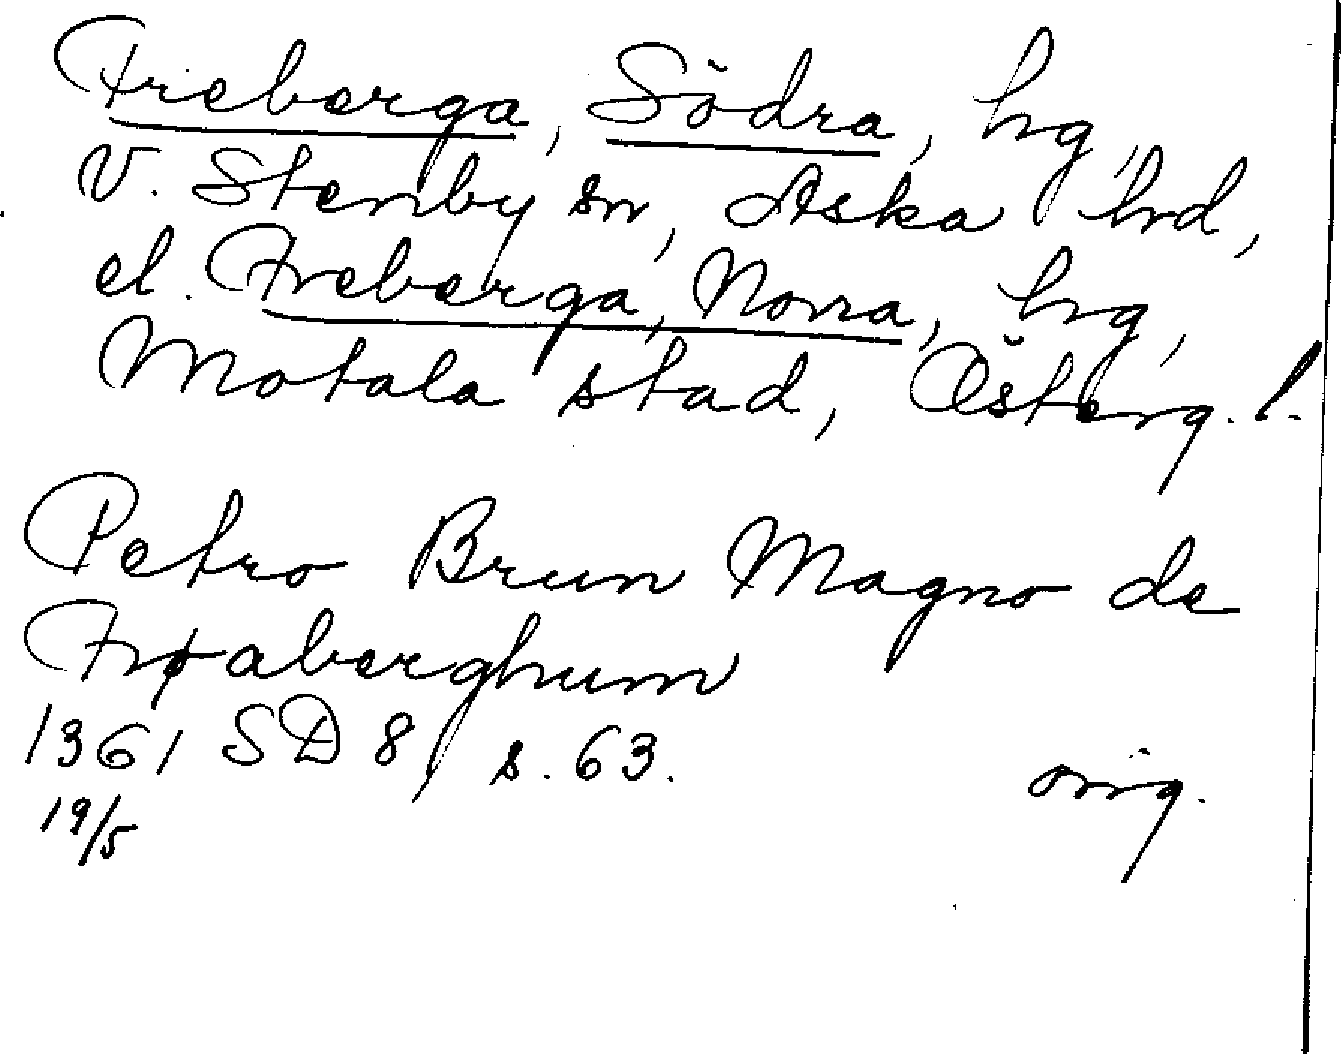 Freberga, Södra, hg,
V. Stenby sn, Aska hrd,
el. Freberga, Norra, hg,
Motala stad, Österg. l.
Petro Brun Magno de
Frøaberghum
1361 SD 8, s. 63.
19/5
orig.